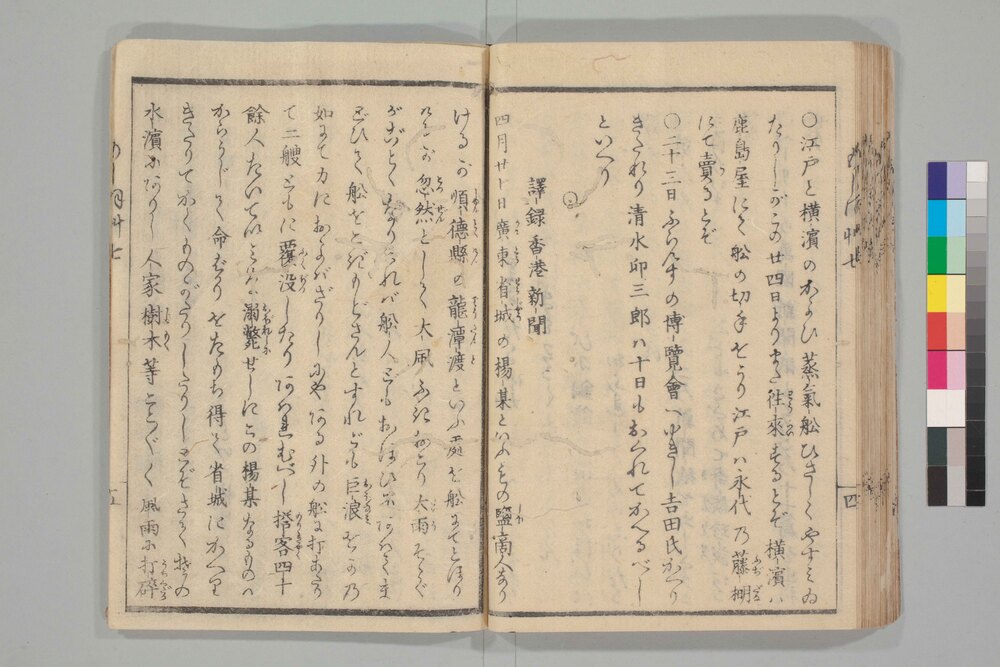 〇江戸と横濱のかよひ蒸氣船ひさしくやすミゐ
たりしがこの廿四日よりまた往來するとぞ横濱ハ
鹿島屋にて船の切手をうり江戸ハ永代乃藤棚
にて賣るとぞ
〇二十三日ふらんすの博覽會へゆきし吉田氏かへり
きたれり清水卯三郎ハ十日もおくれてかへるべし
といへり
譯録香港新聞
四月廿 日廣東省城の楊某といふもの鹽商人なり
けるが順德縣の龍潭渡といふ所を船にてとほり
忽然として大風ふきおこり大雨そゝぐ
がごとくなりければ船人ども
船をこぎもどさんとすれども巨浪その
如にて力におよばざりしにやある外の船に打あたり
て二艘ともに覆没したり 搭客四十
餘人たいてい 溺斃せしにこの楊某なるものハ
からうじて命ばかりをたもち得て省城にかへり
きたりてかくものがたりしたりしとぞさて
水濱にありし人家樹木等ことごとく風雨に打碎